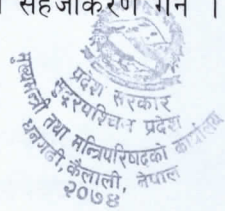 सहजीकरण गर्ने ।
प्रदेश सरकार
सुदूरपश्चिम प्रदेश
मुख्यमन्त्री तथा मन्त्रिपरिषदको कार्यालय
धनगढी, कैलाली, नेपाल
२०७४